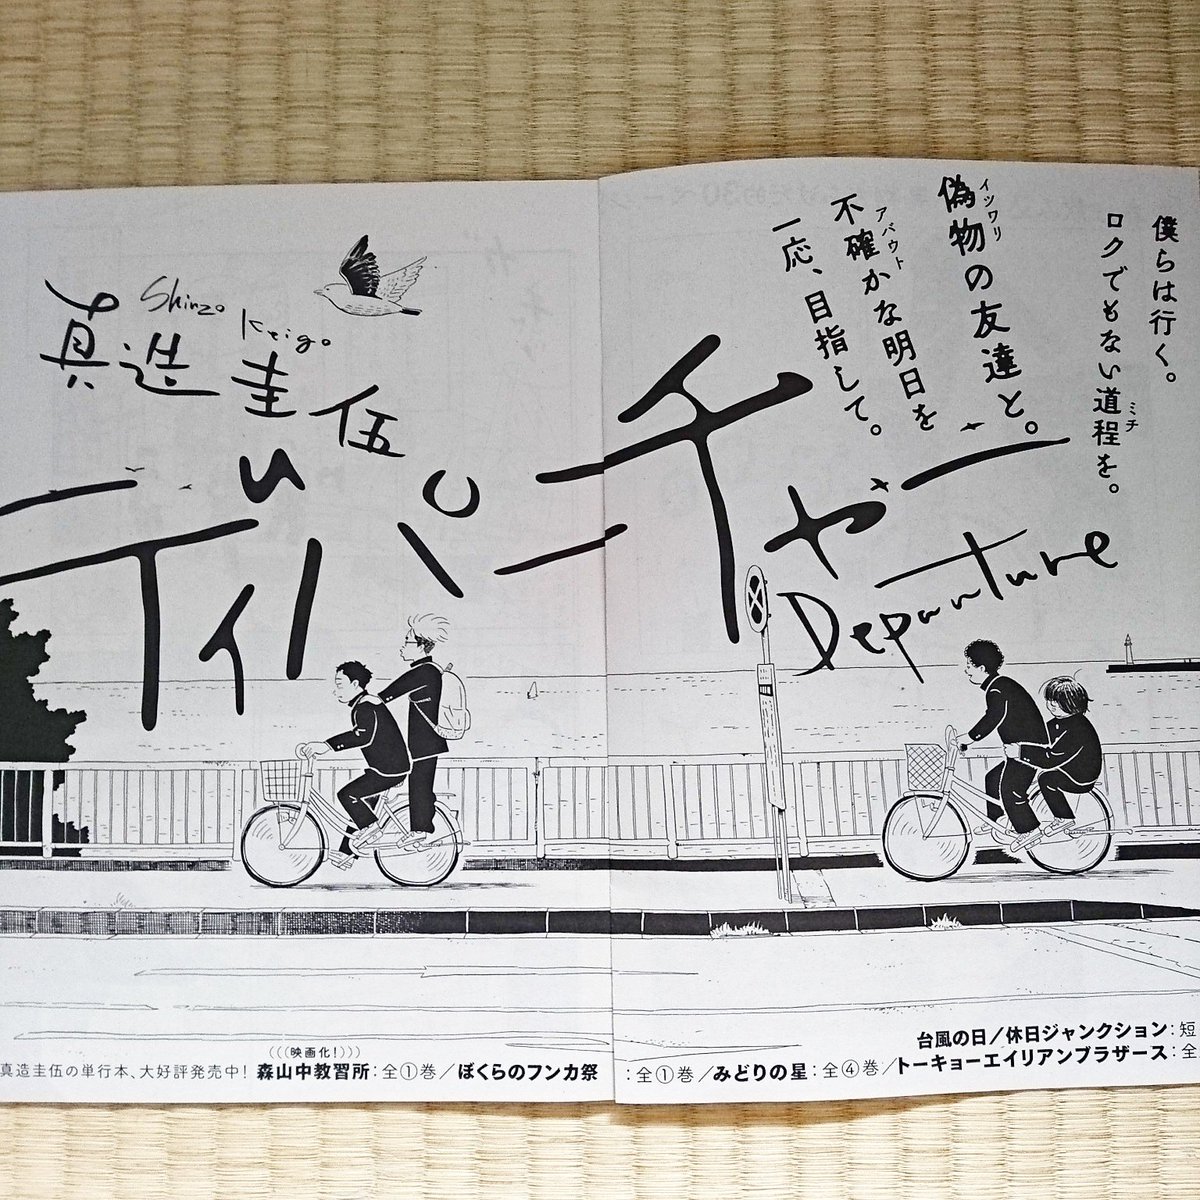 僕らは行く。
ロクでもない道程を。
ミチ
偽物の友達と。
イツワリ
不確かな明日を
アバウト
一応、目指して。
ディパーチャー
Departure
Shinzo Keigo
真造圭伍
(((映画化!)))
真造圭伍の単行本、大好評発売中! 森山中教習所:全①巻/ぼくらのフンカ祭
:全①巻/みどりの星:全④巻/トーキョーエイリアンブラザース:全
台風の日/休日ジャンクション:短